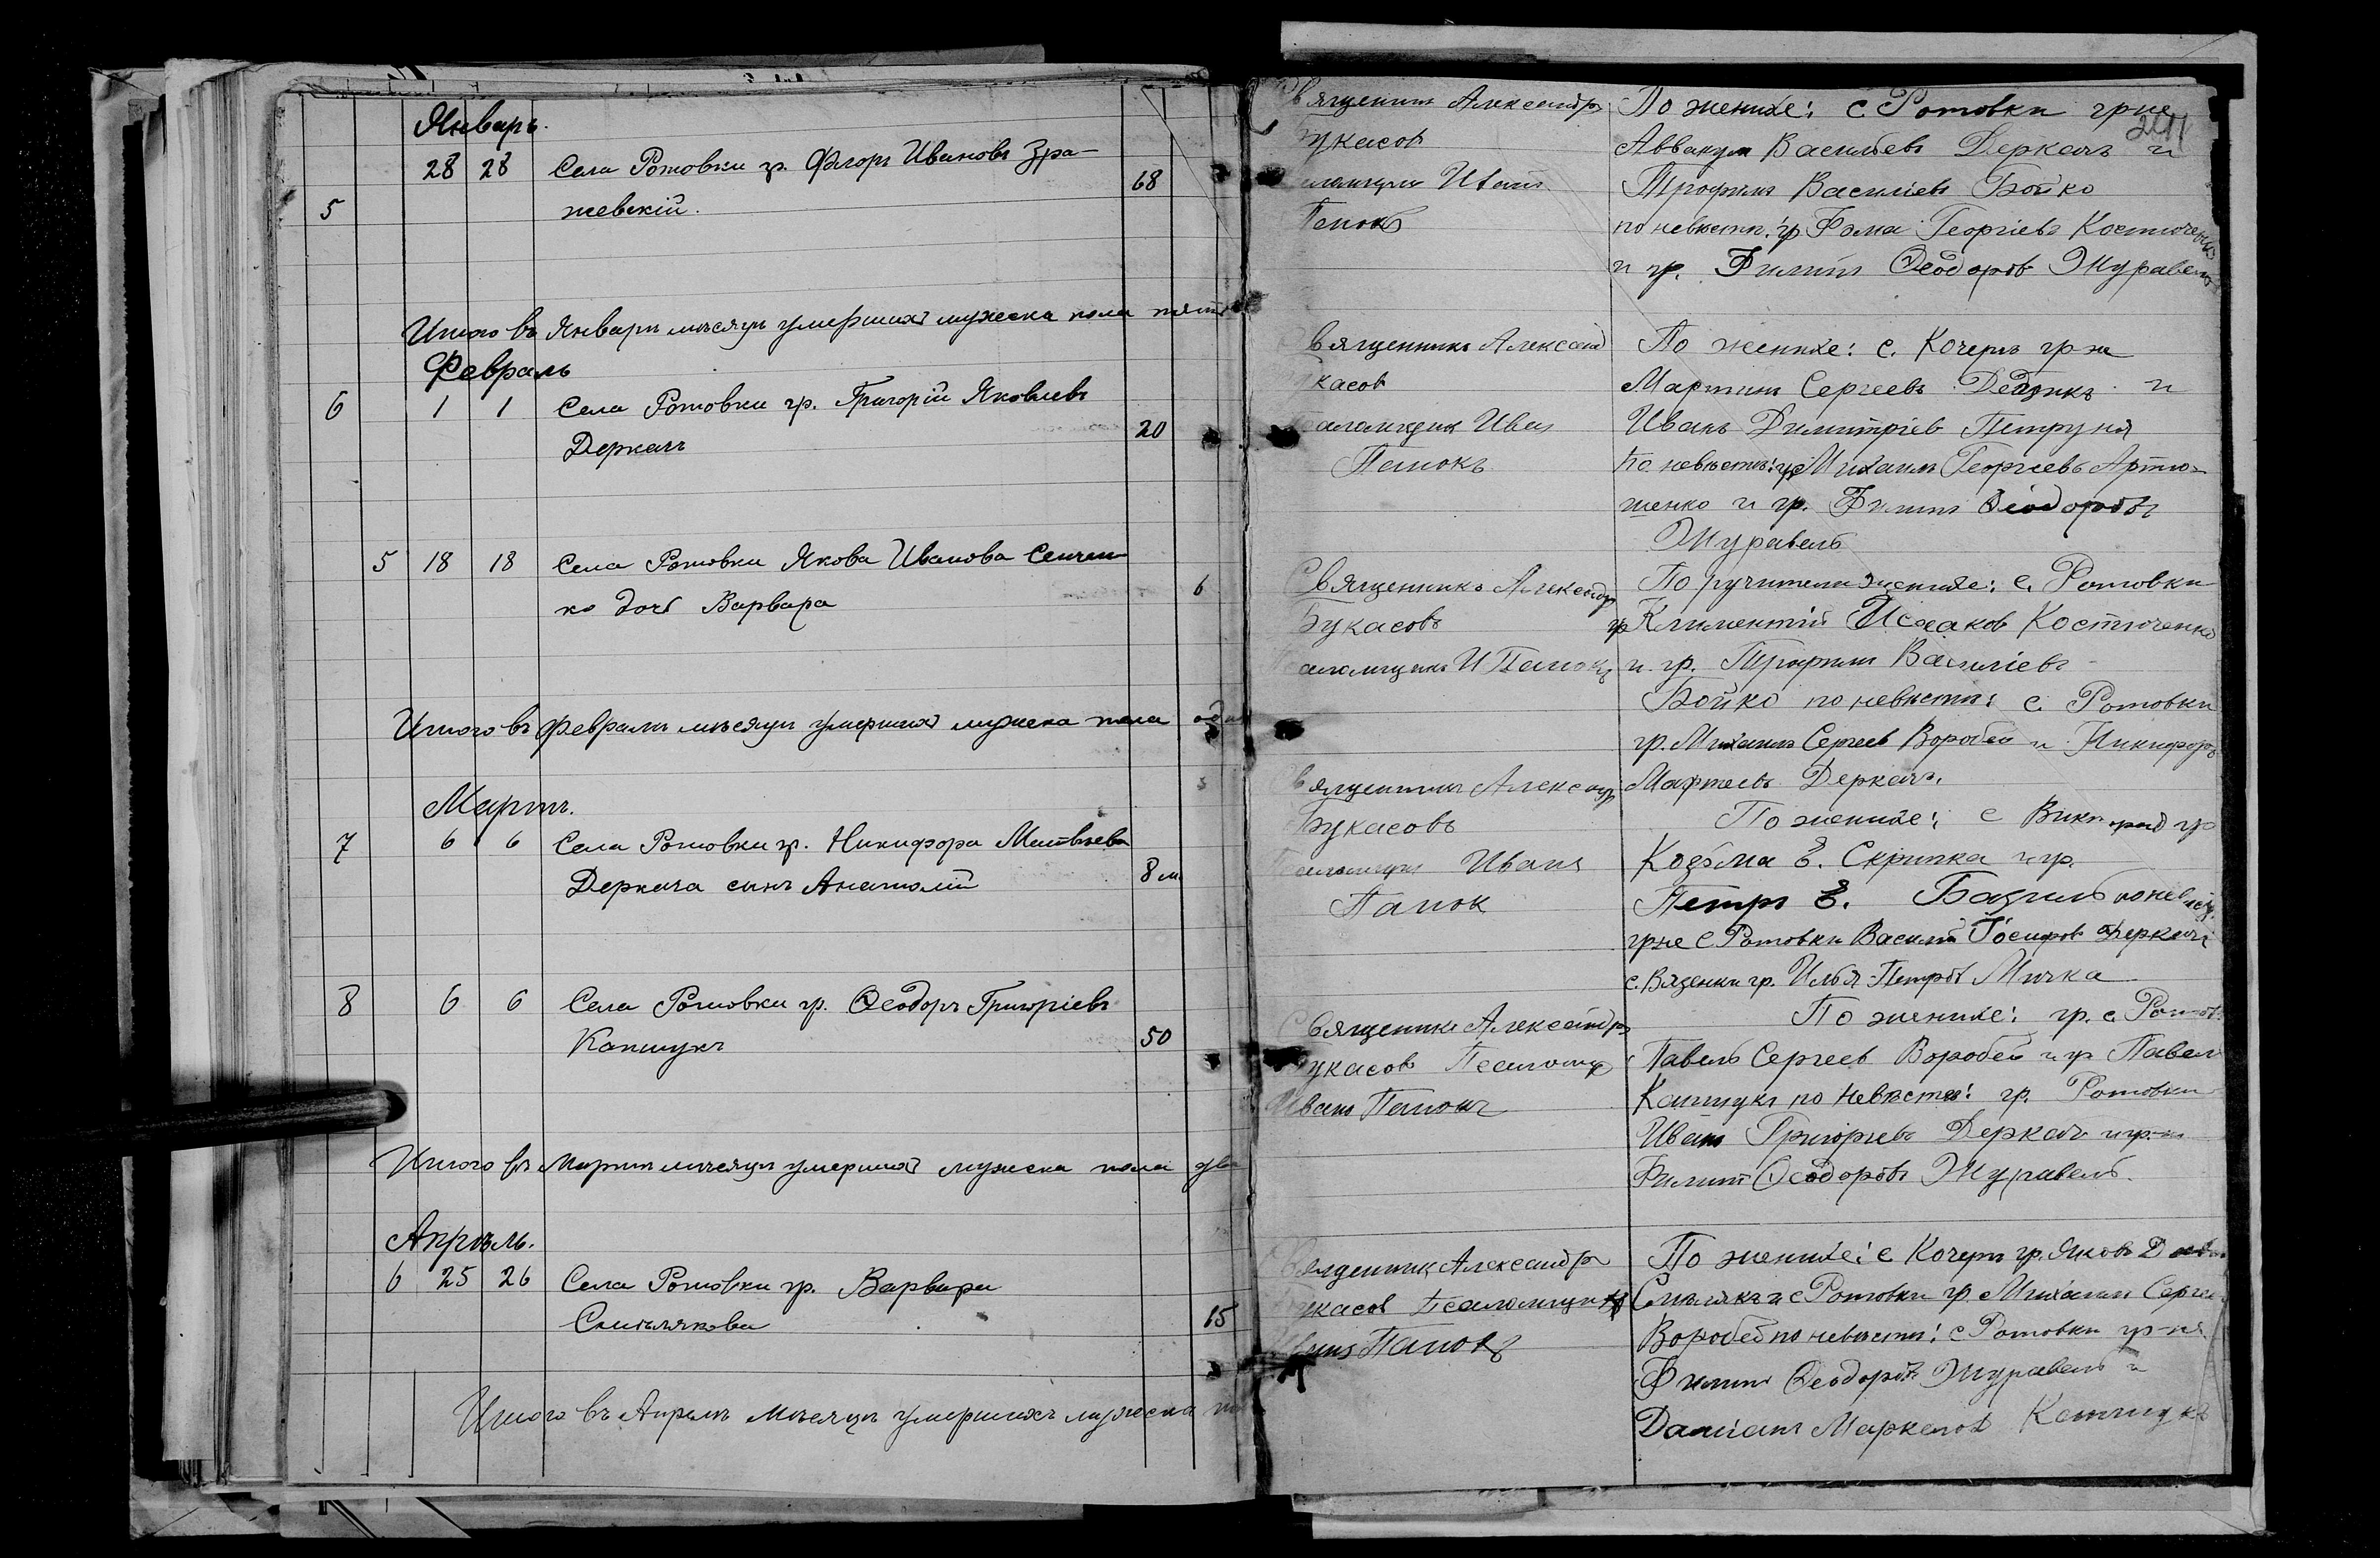 Январь.
5 28 28 Села Ротовки гр. Флоръ Ивановъ Зра-
жевскій. 68
Итого въ Январѣ мѣсяцѣ умершихъ мужеска пола пять
Февраль
6 1 1 Села Ротовки гр. Григорій Яковлевъ
Деркачъ 20
5 18 18 Села Ротовки Якова Иванова Сенчен-
ко дочь Варвара 6
Итого въ Февралѣ мѣсяцѣ умершихъ мужеска пола один
Мартъ.
7 6 6 Села Ротовки гр. Никифора Матвѣева
Деркача сынъ Анатолій 8 м.
8 6 6 Села Ротовки гр. Ѳеодоръ Григоріевъ
Капшукъ 50
Итого въ Мартѣ мѣсяцѣ умершихъ мужеска пола два
Апрѣль.
6 25 26 Села Ротовки гр. Варвара
Смолякова 65
Итого въ Апрѣлѣ мѣсяцѣ умершихъ мужеска
Священник Александръ
Букасов
Псаломщик Иванъ
Папокъ
Священникъ Александ
Букасов
Псаломщик Иван
Папокъ
Священникъ Александр
Букасовъ
Псаломщикъ И Папокъ
Священникъ Александр
Букасовъ
Псаломщик Иванъ
Папок
Священникъ Александръ
Букасов Псаломщ
Иванъ Папокъ
Священник Александръ
Букасов Псаломщик
Иванъ Папокъ
По женихе: с Ротовки гр-не
Аввакум Васильевъ Деркачъ и
Трофимъ Василіевъ Бойко
по невѣсти: гр Фома Георгіевъ Костюченко
и гр. Филипъ Ѳеодоров Журавель
По женихе: с. Кочерги гр-не
Мартинъ Сергеевъ и
Иванъ Димитріев Петруня
по невѣсти: гр Михаилъ Георгиевъ Артю-
шенко и гр. Филипъ Ѳеодоровъ
Журавель
По ручители женихе: с. Ротовки
гр Климентій Исааков Костюченко
и гр. Трофимъ Василіевъ
Бойко по невѣсти: с. Ротовки
гр. Михаилъ Сергеев Воробей и Никифоръ
Матфеевъ Деркачъ.
По женихе: с гр
Козьма Е. Скрипка и гр.
Петръ Е. по невѣсти
гр-не с Ротовки Василій Іосифов Деркачъ
с. Вязенки гр. Илья Петров Мичка
По женихе: гр. с Ротов
Павелъ Сергеев Воробей и гр Павел
Капшукъ по невѣсти: гр. Ротовки
Иванъ Григорьевъ Деркач и гр-н
Филипъ Ѳеодоровъ Журавель.
По женихе: с Кочерги гр. Яков
Смолякъ и с Ротовки гр. Михаил Серге
Воробей по невѣсти: с Ротовки гр-не
Филипъ Ѳеодоровъ Журавель и
Даміанъ Маркелов Капшукъ